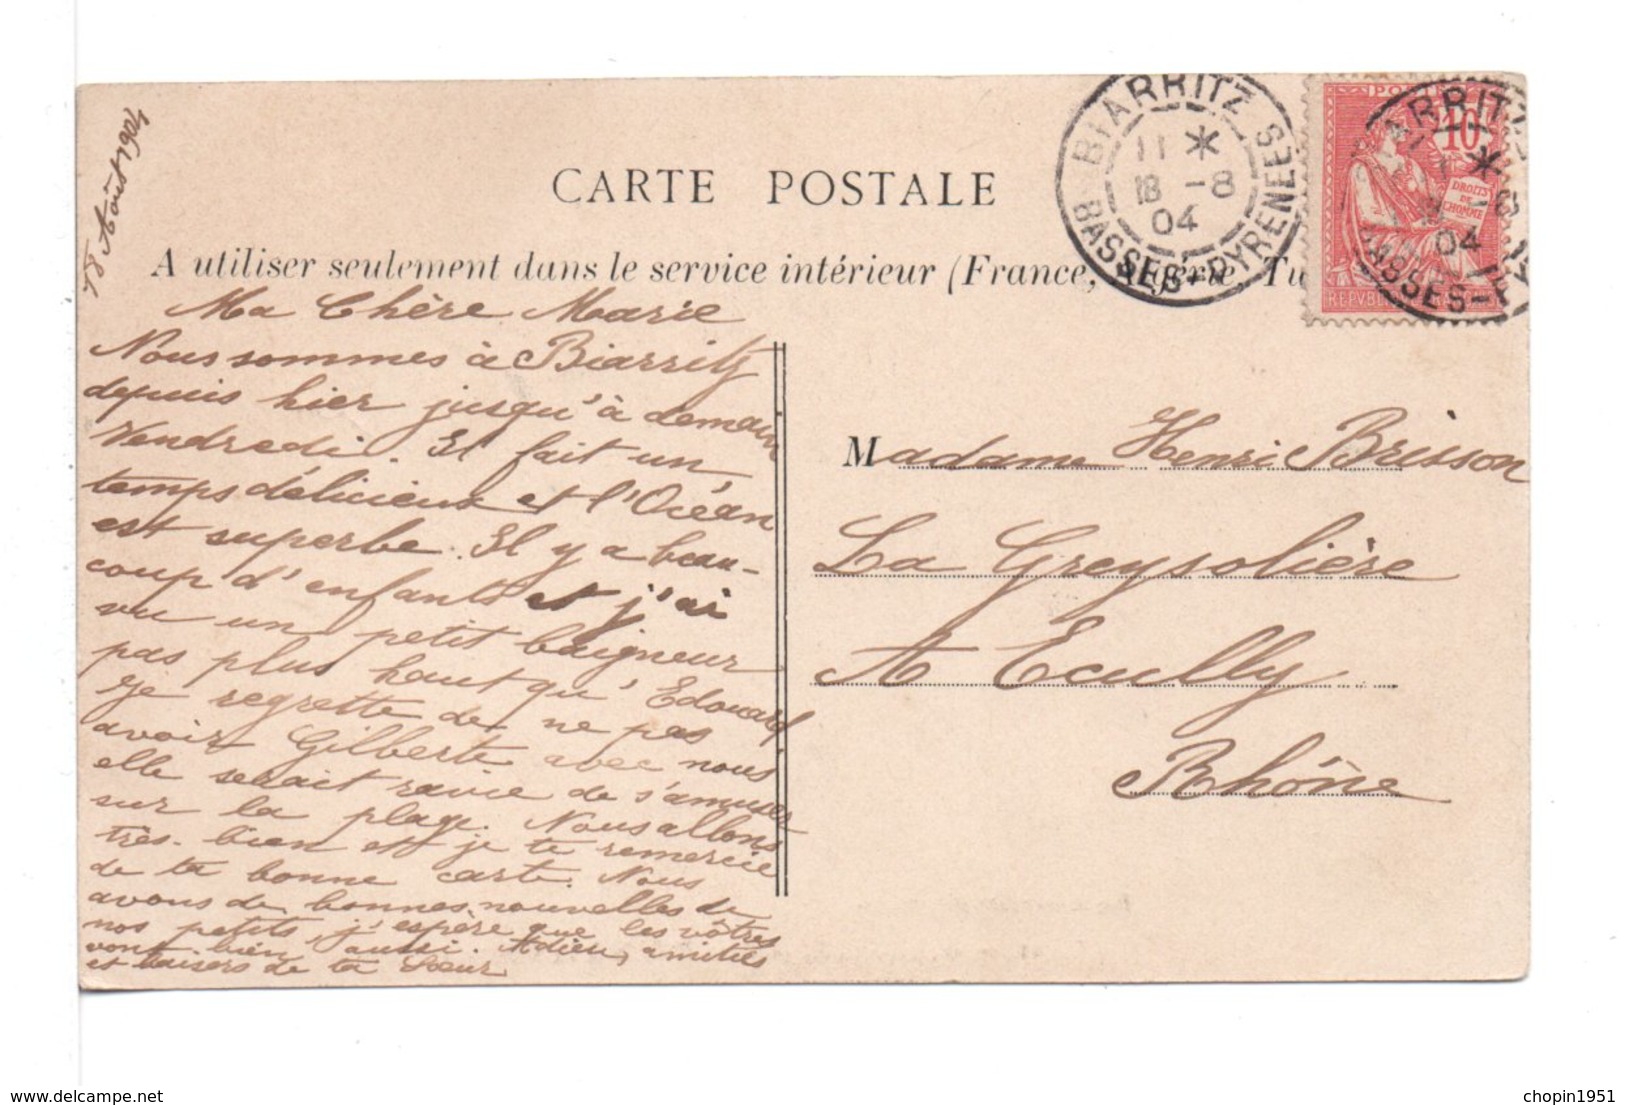 18 Août 1904
CARTE POSTALE
A utiliser seulement dans le service intérieur (France, Algérie, Tu
BIARRITZ
11 *
18 -8
04
BASSES-PYRENEES
PO
10
DROITS
DE
L'HOMME
ARRITZ
*
-8
04
BASSES-PY
REPVB
Ma Chère Marie
Nous sommes à Biarritz
depuis hier jusqu'à demain
Vendredi. Il fait un
temps délicieux et l'Océan
est superbe. Il y a beau-
coup d'enfants et j'ai
vu un petit baigneur
pas plus haut qu'Edouard
Je regrette de ne pas
avoir Gilberte avec nous
elle serait ravie de s'amuser
sur la plage. Nous allons
très-bien et je te remercie
de ta bonne carte. Nous
avons de bonnes nouvelles de
nos petits, j'espère que les vôtres
vont bien aussi. Adieu, amitiés
et baisers de ta Sœur
Madame Henri Brisson
La Greysolière
A Ecully
Rhône
www.delcampe.net
chopin1951